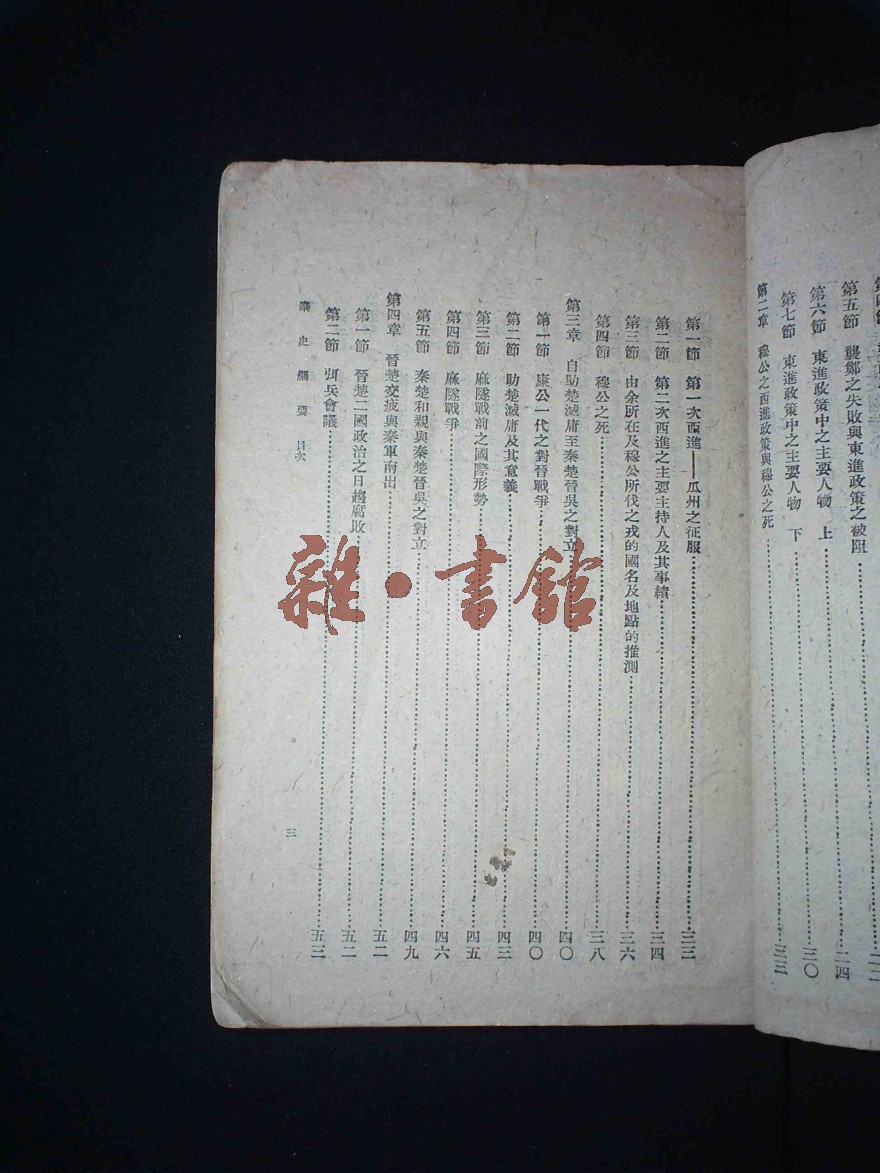 第五節 襲鄭之失敗與東進政策之被阻……二四
第六節 東進政策中之主要人物 上……三〇
第七節 東進政策中之主要人物 下……三三
第二章 穆公之西進政策與穆公之死……三三
第一節 第一次西進——瓜州之征服……三三
第二節 第二次西進之主要主持人及其事績……三四
第三節 由余所在及穆公所伐之戎的國名及地點的推測……三六
第四節 穆公之死……三八
第三章 自助楚滅庸至秦楚晉吳之對立……四〇
第一節 康公一代之對晉戰爭……四〇
第二節 助楚滅庸及其意義……四三
第三節 麻隧戰前之國際形勢……四五
第四節 麻隧戰爭……四六
第五節 秦楚和親與秦楚晉吳之對立……四九
第四章 晉楚交疲與秦軍南出……五二
第一節 晉楚二國政治之日趨腐敗……五二
第二節 弭兵會議……五三
秦史綱要 目次 三
雜·書館